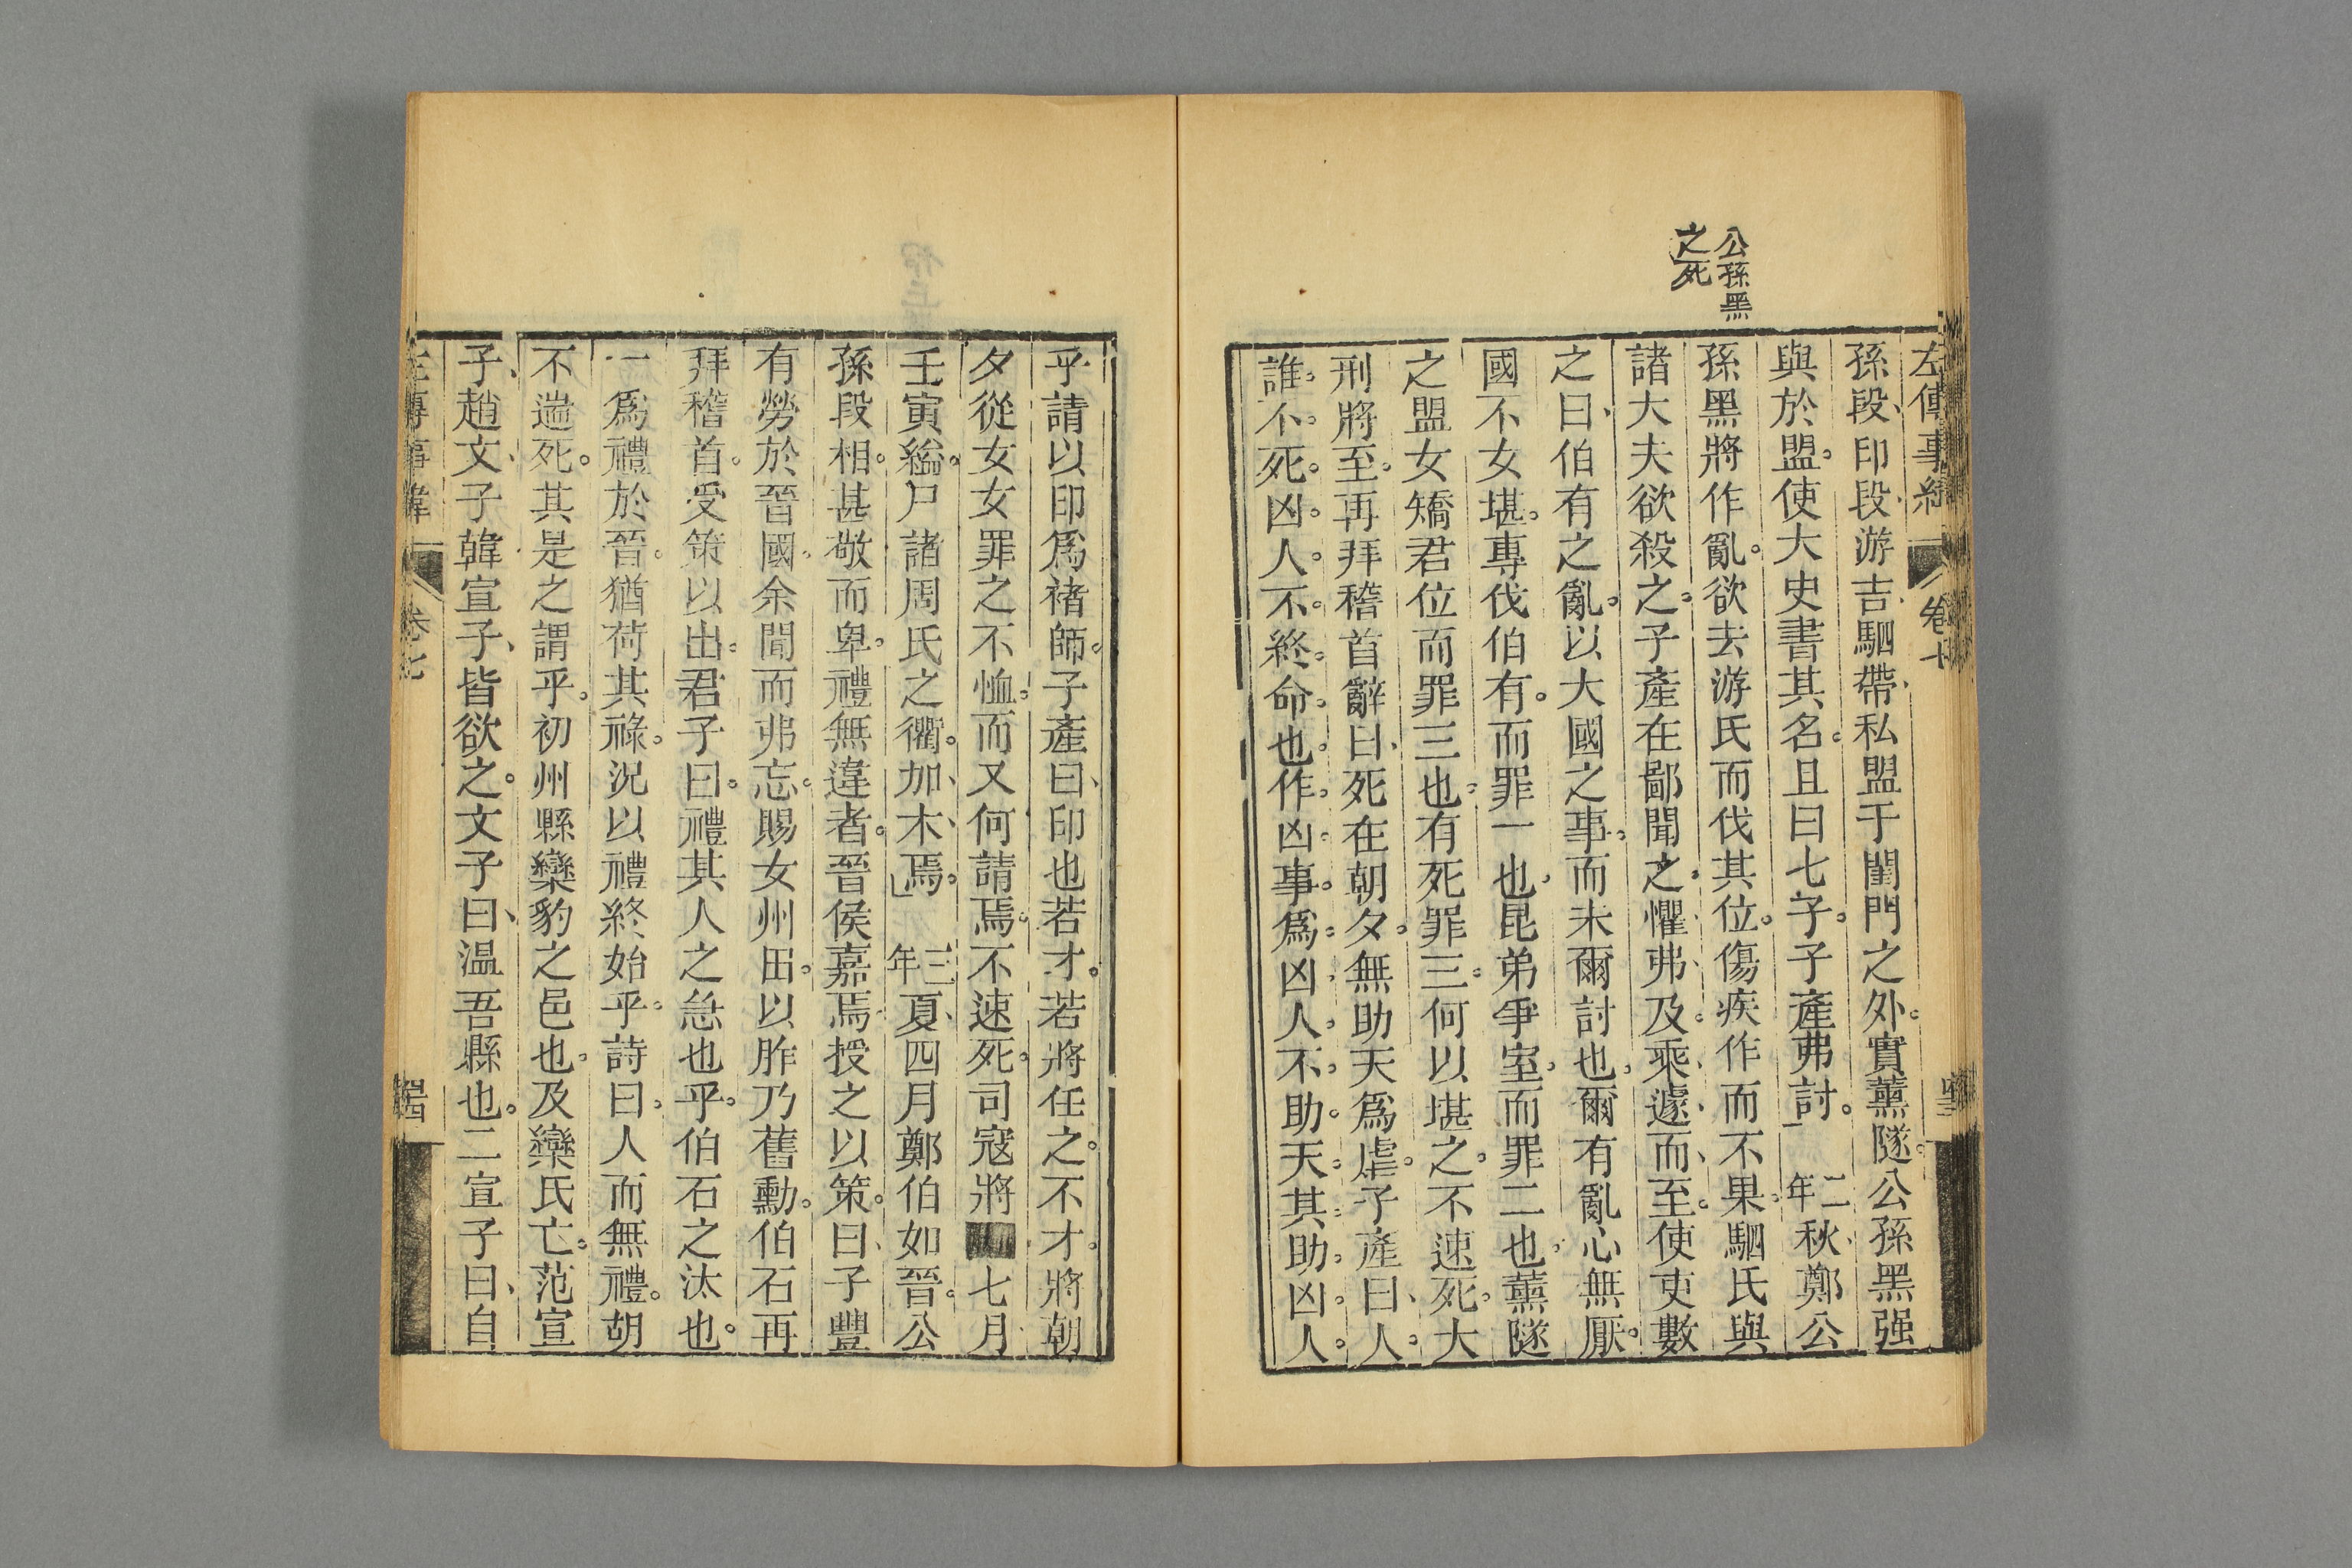 公孫黑
之死
左傳事緯 卷十
孫段、印段、游吉、駟帶私盟于閨門之外。實薰隧。公孫黑强
與於盟。使大史書其名。且曰七子。子產弗討。二年秋、鄭公
孫黑將作亂。欲去游氏而伐其位。傷疾作而不果。駟氏與
諸大夫欲殺之。子產在鄙聞之。懼弗及。乘遽而至。使吏數
之曰、伯有之亂。以大國之事。而未爾討也。爾有亂心無厭。
國不女堪。專伐伯有。而罪一也。昆弟爭室。而罪二也。薰隧
之盟女矯君位而罪三也。有死罪三。何以堪之。不速死。大
刑將至。再拜稽首辭曰、死在朝夕。無助天爲虐。子產曰、人。
誰。不。死。凶。人。不。終。命。也。作。凶。事。爲。凶。人。不。助。天。其。助。凶。人。
乎請以印爲褚師。子產曰、印也若才。若將任之。不才。將朝
夕從女。女罪之不恤。而又何請焉。不速死。司寇將 七月
壬寅縊。尸諸周氏之衢。加木焉。三年夏、四月鄭伯如晉。公
孫段相。甚敬而卑。禮無違者。晉侯嘉焉。授之以策。曰、子豐
有勞於晉國。余聞而弗忘。賜女州田。以胙乃舊勳。伯石再
拜稽首。受策以出。君子曰。禮其人之急也乎。伯石之汰也。
一爲禮於晉。猶荷其祿。況以禮終始乎。詩曰。人而無禮。胡
不遄死。其是之謂乎。初州縣欒豹之邑也。及欒氏亡。范宣
子、趙文子、韓宣子、皆欲之。文子曰、温吾縣也。二宣子曰、自
左傳事緯 卷七